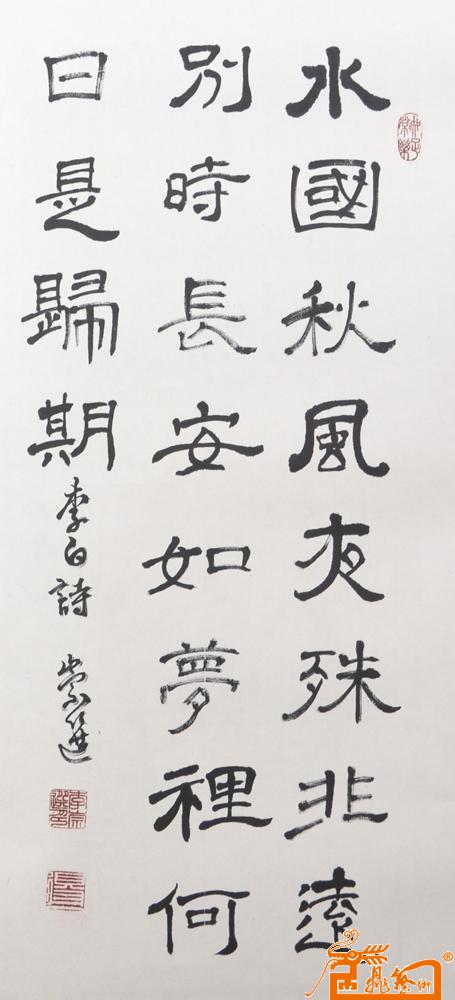 水國秋風夜殊非遠
別時長安如夢裡何
日是歸期
李白詩 崇選